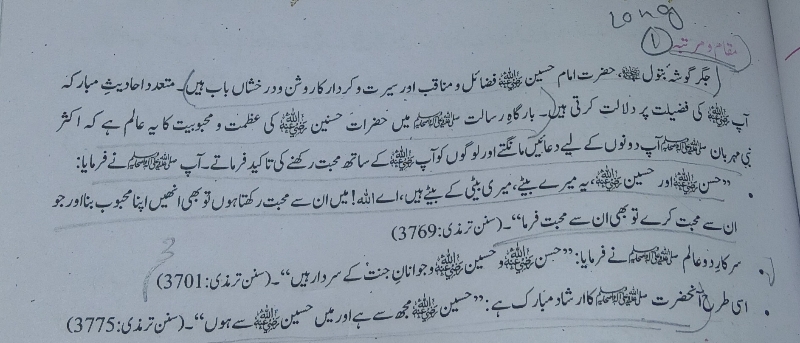 long
مقام و مرتبہ (۱)
جگر گوشۂ بتول رضی اللہ عنہا، حضرت امام حسین رضی اللہ عنہ فضائل و مناقب اور سیرت و کردار کا روشن و درخشاں باب ہیں۔ متعدد احادیثِ مبارکہ
آپ رضی اللہ عنہ کی فضیلت پر دلالت کرتی ہیں۔ بارگاہِ رسالت صلی اللہ علیہ وسلم میں حضرات حسنین رضی اللہ عنہما کی عظمت و محبوبیت کا یہ عالم ہے کہ اکثر
نبی مہربان صلی اللہ علیہ وسلم آپ دونوں کے لیے دعائیں مانگتے اور لوگوں کو آپ رضی اللہ عنہما کے ساتھ محبت رکھنے کی تاکید فرماتے۔ آپ صلی اللہ علیہ وسلم نے فرمایا:
• ”حسن رضی اللہ عنہ اور حسین رضی اللہ عنہ، یہ میرے بیٹے، میری بیٹی کے بیٹے ہیں، اے اللہ! میں ان سے محبت رکھتا ہوں تو بھی انھیں اپنا محبوب بنا اور جو
ان سے محبت کرے تو بھی ان سے محبت فرما“۔ (سنن ترمذی: 3769)
• سرکارِ دو عالم صلی اللہ علیہ وسلم نے فرمایا: ”حسن رضی اللہ عنہ و حسین رضی اللہ عنہ نوجوانانِ جنت کے سردار ہیں“۔ (سنن ترمذی: 3701)
• اسی طرح آنحضرت صلی اللہ علیہ وسلم کا ارشاد مبارک ہے: ”حسین رضی اللہ عنہ مجھ سے ہے اور میں حسین رضی اللہ عنہ سے ہوں“۔ (سنن ترمذی: 3775)